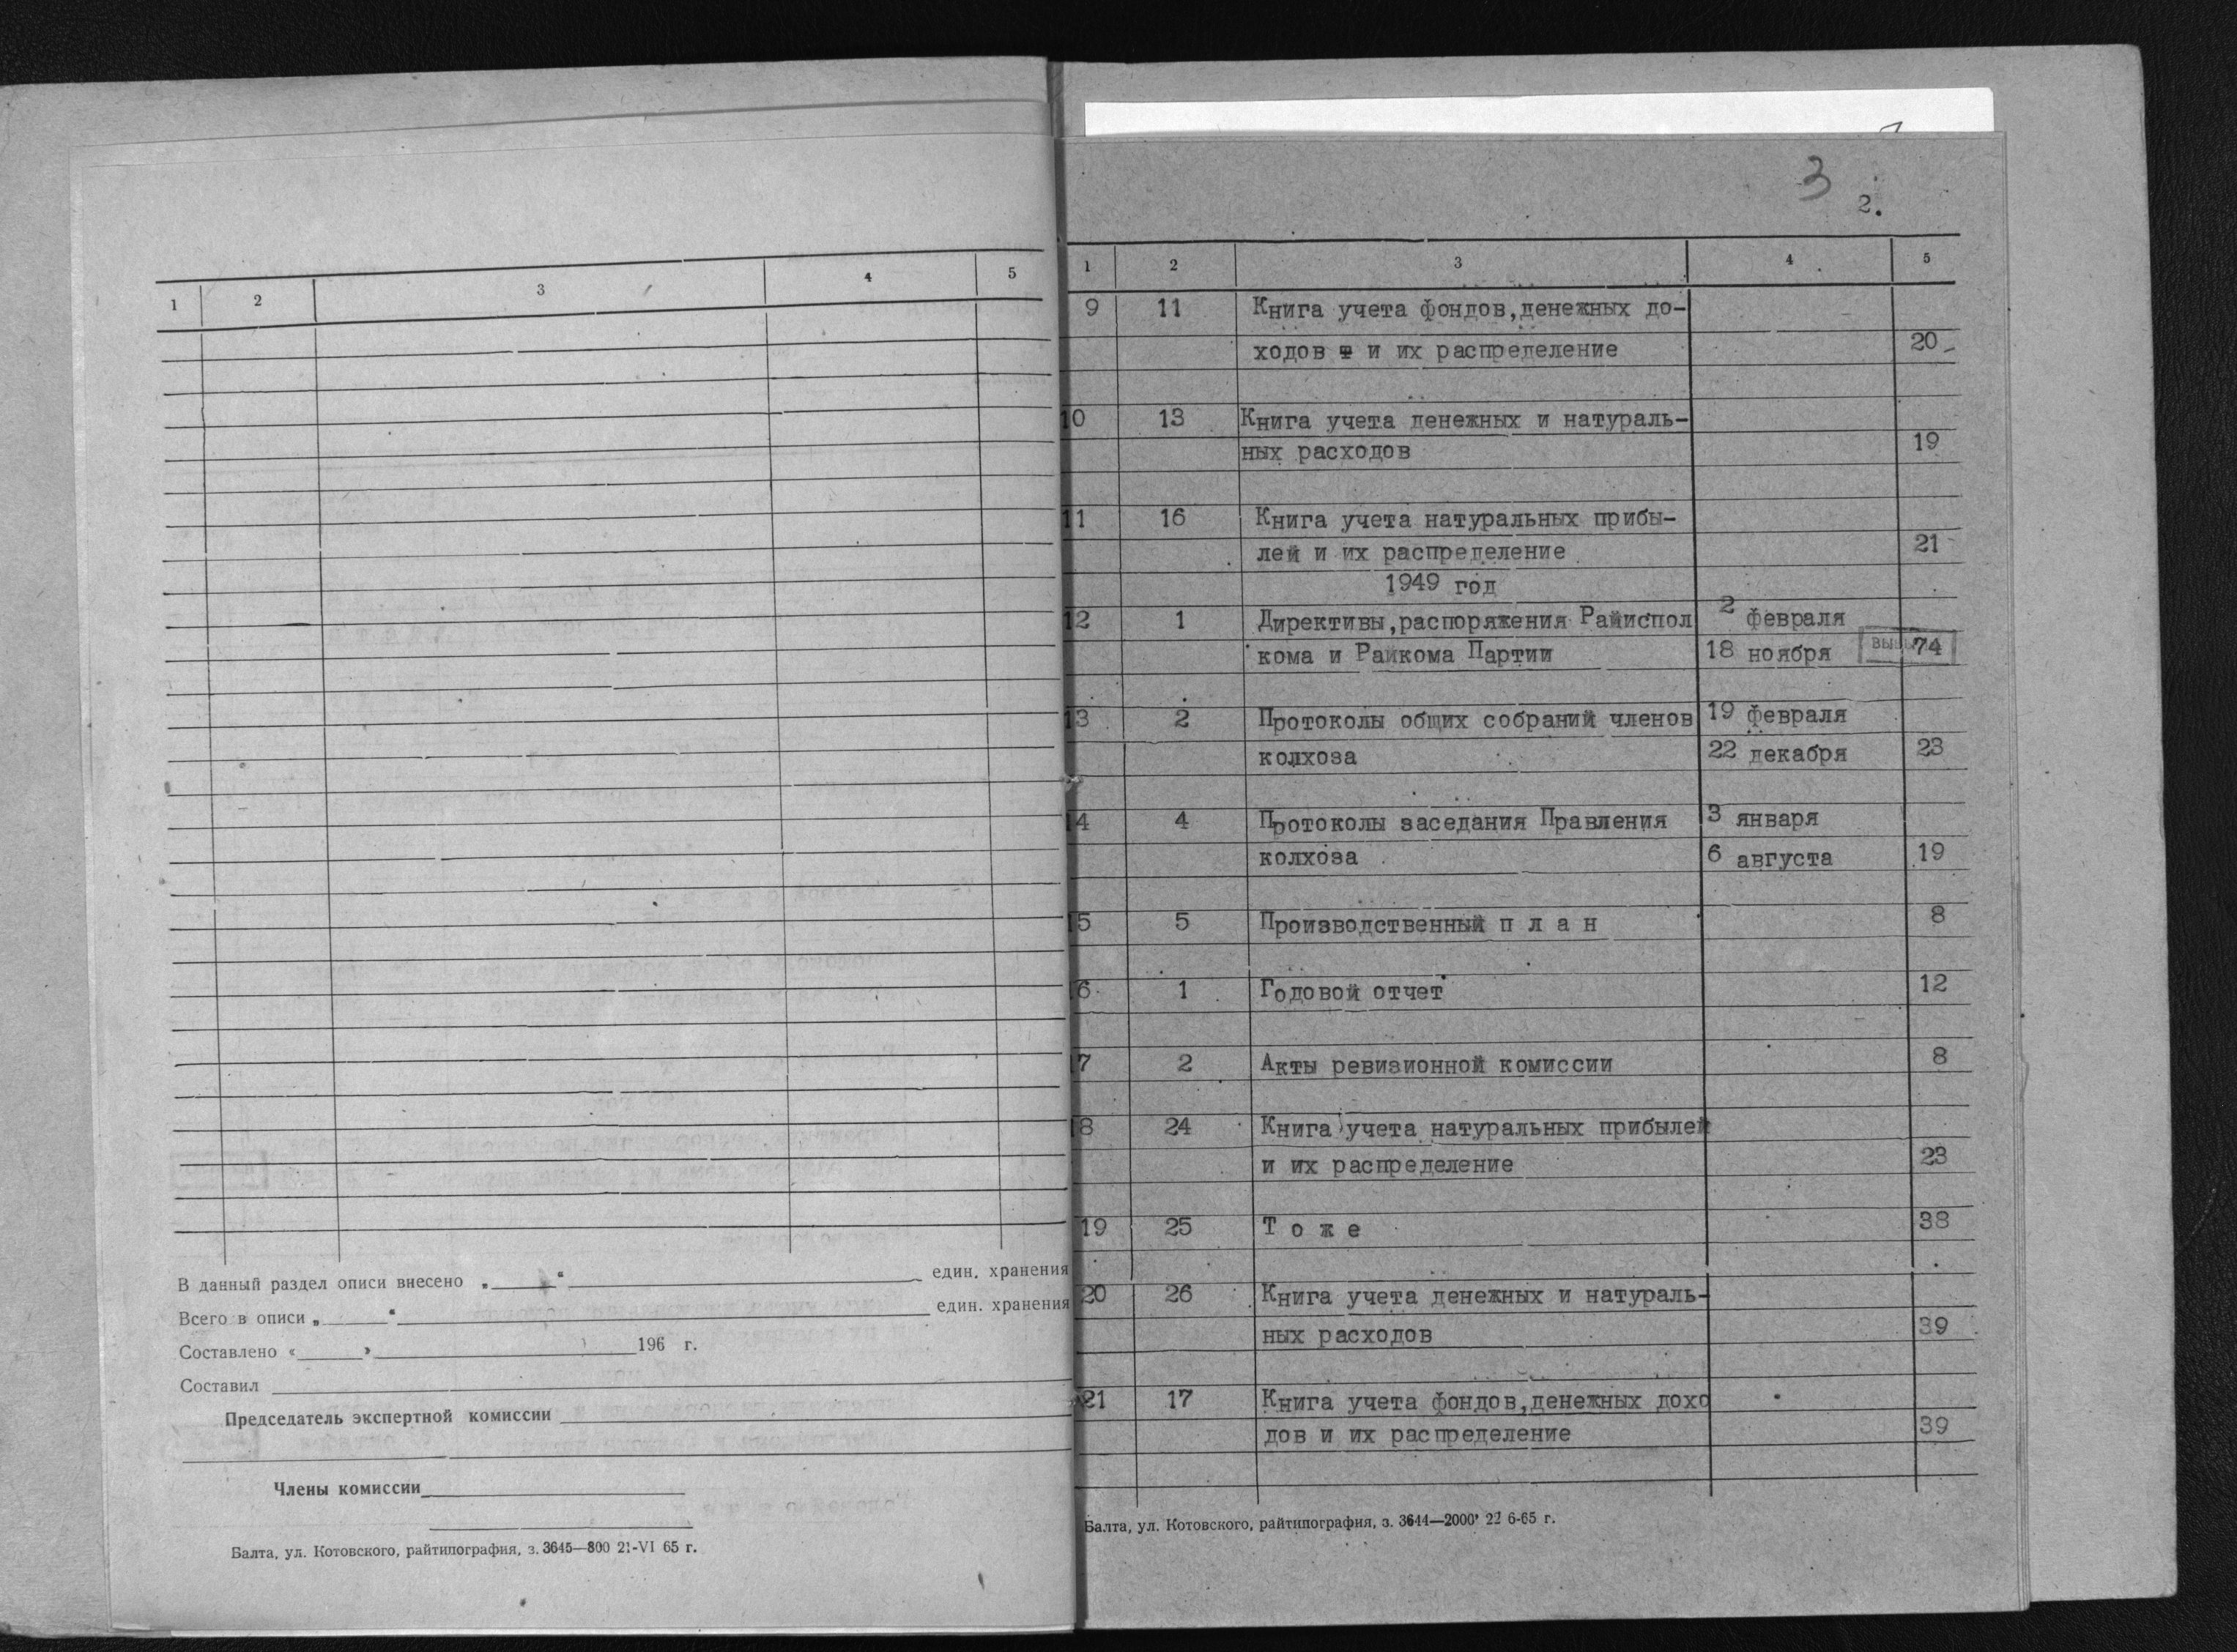 1 2 3 4 5
В данный раздел описи внесено „ “ един. хранения
Всего в описи „ “ един. хранения
Составлено « » 196 г.
Составил
Председатель экспертной комиссии
Члены комиссии
Балта, ул. Котовского, райтипография, з. 3645—800 21-VI 65 г.
3
2.
1 2 3 4 5
9 11 Книга учета фондов,денежных до-
ходов и их распределение 20
10 13 Книга учета денежных и натураль-
ных расходов 19
11 16 Книга учета натуральных прибы-
лей и их распределение 21
1949 год
12 1 Директивы,распоряжения Райиспол 2 февраля
кома и Райкома Партии 18 ноября 74
13 2 Протоколы общих собраний членов 19 февраля
колхоза 22 декабря 23
14 4 Протоколы заседания Правления 3 января
колхоза 6 августа 19
15 5 Производственный п л а н 8
16 1 Годовой отчет 12
17 2 Акты ревизионной комиссии 8
18 24 Книга учета натуральных прибылей
и их распределение 23
19 25 Т о ж е 38
20 26 Книга учета денежных и натураль-
ных расходов 39
21 17 Книга учета фондов,денежных дохо
дов и их распределение 39
Балта, ул. Котовского, райтипография, з. 3644—2000 22 6-65 г.